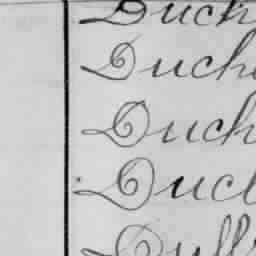 Duch
Duch
Duch
Duc
Duff